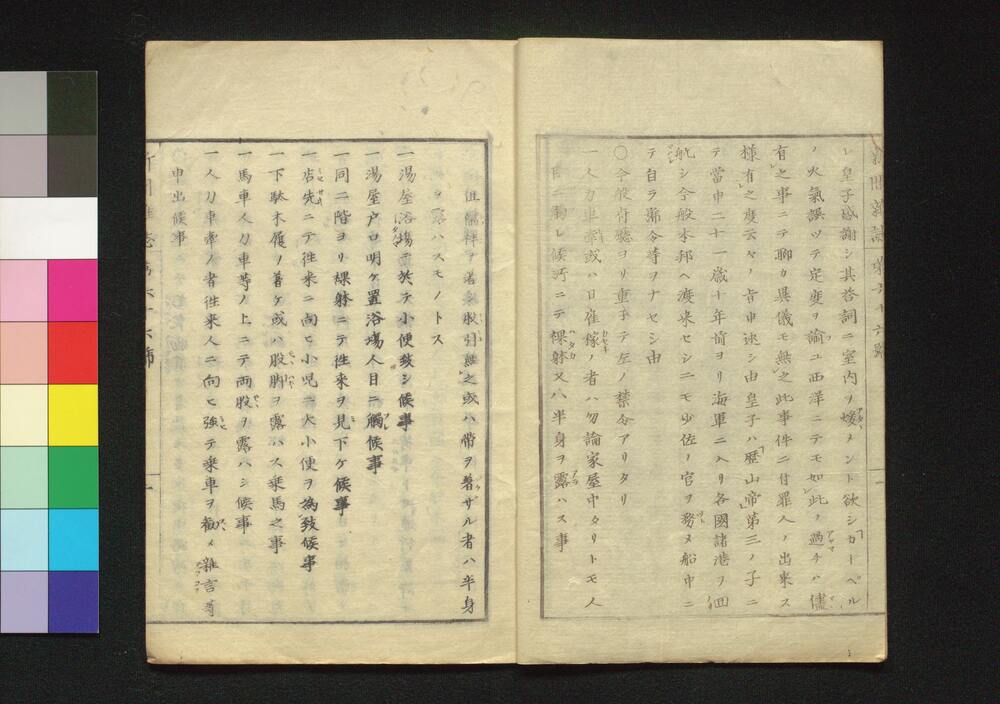 新聞雜誌 第六十六號
レ皇子感謝シ其答詞ニ室内ヲ煖メント欲シカーペル
ノ火氣誤ツテ定度ヲ諭ユ西洋ニテモ如此ノ過チハ儘
有之事ニテ聊カ異儀モ無之此事件ニ付罪人ノ出來ス
樣有之度云々ノ旨申述シ由皇子ハ歴山帝第三ノ子ニ
テ當申二十一歳十年前ヨリ海軍ニ入リ各國諸港ヲ回
航シ今般本邦ヘ渡來セシニモ少佐ノ官ヲ務メ船中ニ
テ自ラ號令等ヲナセシ由
〇今般府廳ヨリ重子テ左ノ禁令アリタリ
一人力車牽或ハ日雇稼ノ者ハ勿論家屋中タリトモ人
目ニ觸レ候所ニテ裸躰又ハ半身ヲ露ハス事
但襦袢ヲ着シ股引無之或ハ帶ヲ着ザル者ハ半身
ヲ露ハスモノトス
一湯屋浴場ニ於テ小便致シ候事
一湯屋戸口明ケ置浴場人目ニ觸候事
一同二階ヨリ裸躰ニテ往來ヲ見下ケ候事
一店先ニテ往來ニ向ヒ小児ニ大小便ヲ為致候事
一下駄木履ノ着ケ或ハ股脚ヲ露ハス乘馬之事
一馬車人力車等ノ上ニテ両股ヲ露ハシ候事
一人力車牽ノ者往來人ニ向ヒ強テ乘車ヲ勸メ雜言等
申出候事
新聞雜誌 第六十六號 一